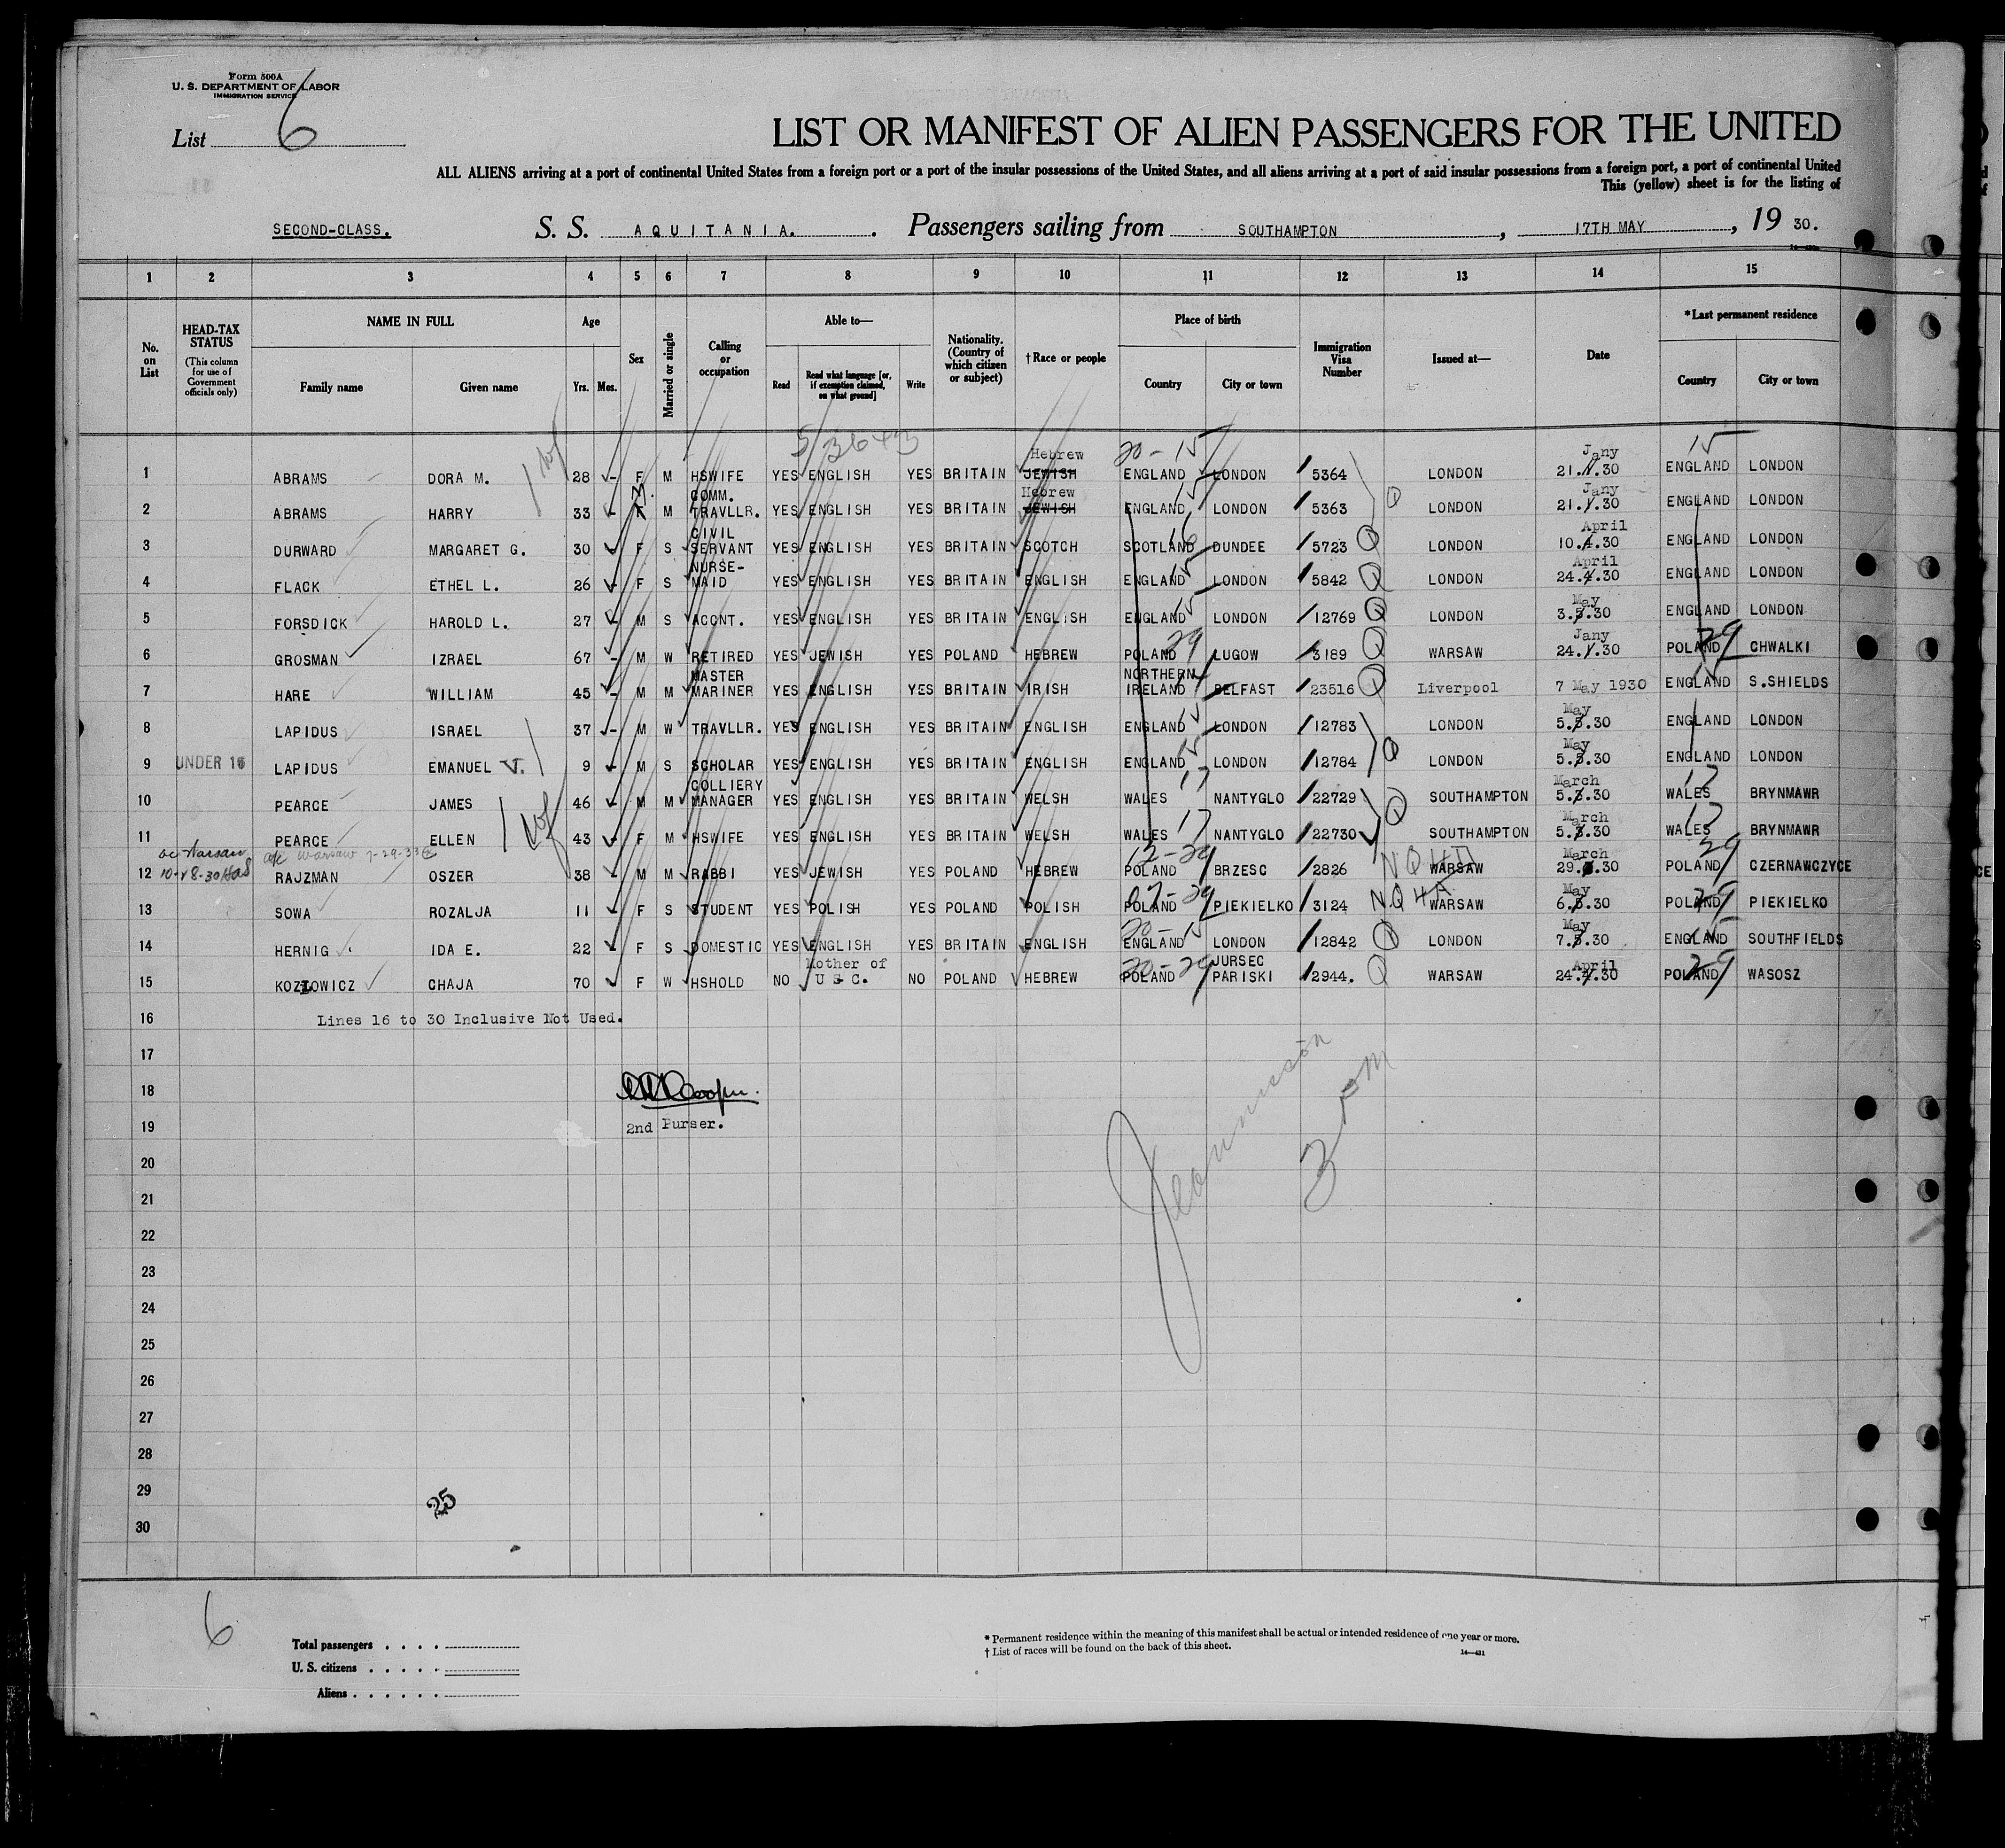 Form 500A
U. S. DEPARTMENT OF LABOR
IMMIGRATION SERVICE
List 6
LIST OR MANIFEST OF ALIEN PASSENGERS FOR THE UNITED
ALL ALIENS arriving at a port of continental United States from a foreign port or a port of the insular possessions of the United States, and all aliens arriving at a port of said insular possessions from a foreign port, a port of continental United
This (yellow) sheet is for the listing of
SECOND-CLASS. S. S. AQUITANIA. Passengers sailing from SOUTHAMPTON, 17TH MAY, 19 30.
1 2 3 4 5 6 7 8 9 10 11 12 13 14 15
No. on List
HEAD-TAX STATUS (This column for use of Government officials only)
NAME IN FULL Family name Given name
Age Yrs. Mos.
Sex
Married or single
Calling or occupation
Able to— Read Read what language [or, if exemption claimed, on what ground] Write
Nationality. (Country of which citizen or subject)
†Race or people
Place of birth Country City or town
Immigration Visa Number
Issued at—
Date
*Last permanent residence Country City or town
1 ABRAMS DORA M. 28 F M HSWIFE YES ENGLISH YES BRITAIN JEWISH Hebrew ENGLAND LONDON 5364 LONDON 21.1.30 Jany ENGLAND LONDON
2 ABRAMS HARRY 33 F M. M COMM. TRAVLLR. YES ENGLISH YES BRITAIN JEWISH Hebrew ENGLAND LONDON 5363 LONDON 21.1.30 Jany ENGLAND LONDON
3 DURWARD MARGARET G. 30 F S CIVIL SERVANT YES ENGLISH YES BRITAIN SCOTCH SCOTLAND DUNDEE 5723 Q LONDON 10.4.30 April ENGLAND LONDON
4 FLACK ETHEL L. 26 F S NURSE-MAID YES ENGLISH YES BRITAIN ENGLISH ENGLAND LONDON 5842 Q LONDON 24.4.30 April ENGLAND LONDON
5 FORSDICK HAROLD L. 27 M S ACONT. YES ENGLISH YES BRITAIN ENGLISH ENGLAND LONDON 12769 Q LONDON 3.5.30 May ENGLAND LONDON
6 GROSMAN IZRAEL 67 M W RETIRED YES JEWISH YES POLAND HEBREW POLAND LUGOW 3189 Q WARSAW 24.1.30 Jany POLAND CHWALKI
7 HARE WILLIAM 45 M M MASTER MARINER YES ENGLISH YES BRITAIN IRISH NORTHERN IRELAND BELFAST 23516 Q Liverpool 7 May 1930 ENGLAND S.SHIELDS
8 LAPIDUS ISRAEL 37 M W TRAVLLR. YES ENGLISH YES BRITAIN ENGLISH ENGLAND LONDON 12783 LONDON 5.5.30 May ENGLAND LONDON
9 UNDER 16 LAPIDUS EMANUEL V. 9 M S SCHOLAR YES ENGLISH YES BRITAIN ENGLISH ENGLAND LONDON 12784 Q LONDON 5.5.30 May ENGLAND LONDON
10 PEARCE JAMES 46 M M COLLIERY MANAGER YES ENGLISH YES BRITAIN WELSH WALES NANTYGLO 22729 Q SOUTHAMPTON 5.3.30 March WALES BRYNMAWR
11 PEARCE ELLEN 43 F M HSWIFE YES ENGLISH YES BRITAIN WELSH WALES NANTYGLO 22730 SOUTHAMPTON 5.3.30 March WALES BRYNMAWR
12 RAJZMAN OSZER 38 M M RABBI YES JEWISH YES POLAND HEBREW POLAND BRZESC 2826 WARSAW 29.3.30 March POLAND CZERNAWCZYCE
13 SOWA ROZALJA 11 F S STUDENT YES POLISH YES POLAND POLISH POLAND PIEKIELKO 3124 WARSAW 6.5.30 May POLAND PIEKIELKO
14 HERNIG IDA E. 22 F S DOMESTIC YES ENGLISH YES BRITAIN ENGLISH ENGLAND LONDON 12842 Q LONDON 7.5.30 May ENGLAND SOUTHFIELDS
15 KOZLOWICZ CHAJA 70 F W HSHOLD NO Mother of U S C. NO POLAND HEBREW POLAND JURSEC PARISKI 2944. Q WARSAW 24.4.30 April POLAND WASOSZ
16 Lines 16 to 30 Inclusive Not Used.
17
18
19 2nd Purser.
20
21
22
23
24
25
26
27
28
29
25
30
6
Total passengers
U. S. citizens
Aliens
* Permanent residence within the meaning of this manifest shall be actual or intended residence of one year or more.
† List of races will be found on the back of this sheet.